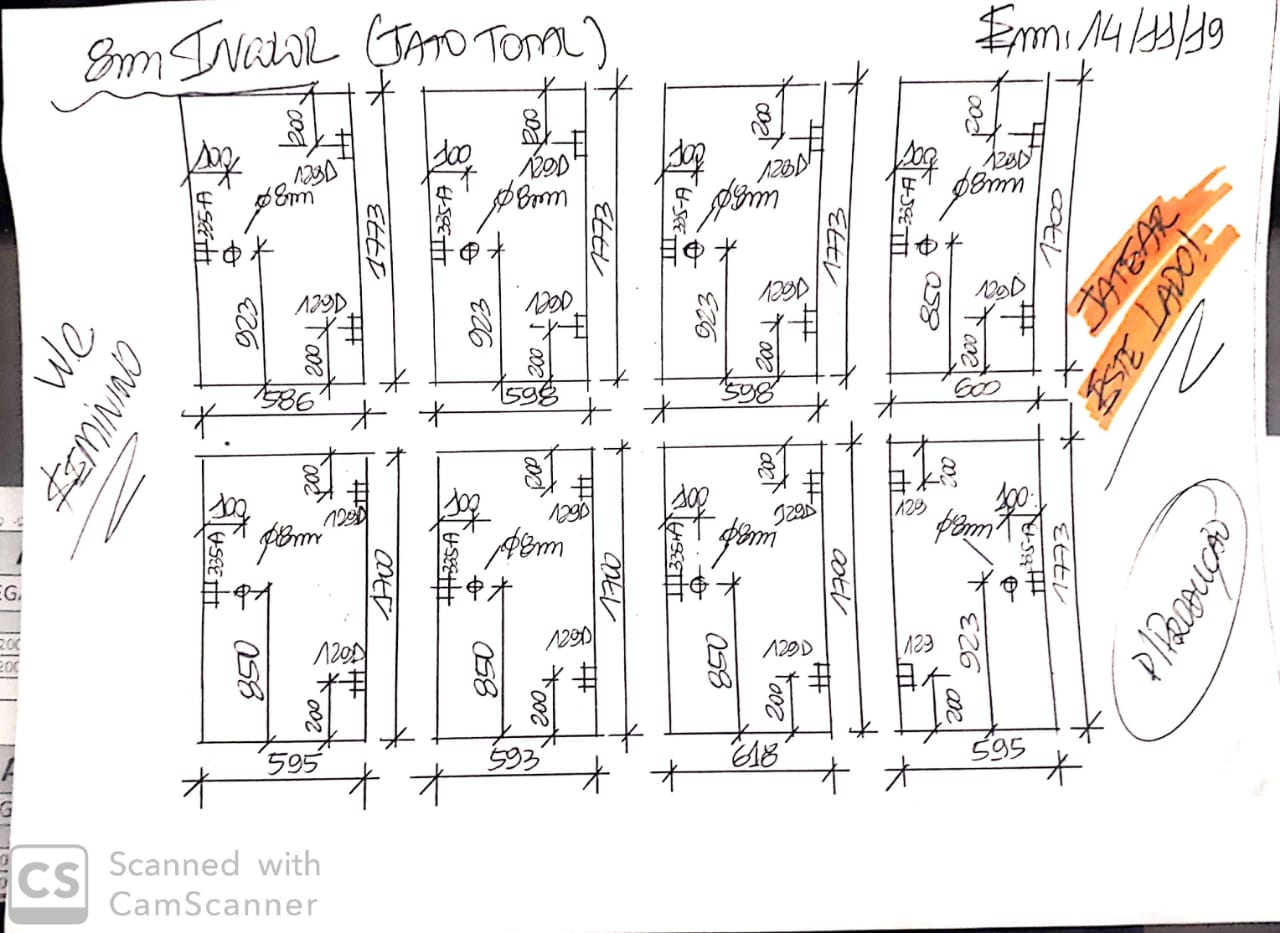 8mm INCOLOR (JATO TOTAL)
Em: 14/11/19
200
100
129D
335-A
Ø8mm
1773
923
129D
200
586
200
100
129D
335-A
Ø8mm
1773
923
129D
200
598
200
100
129D
335-A
Ø8mm
1773
923
129D
200
598
200
100
129D
335-A
Ø8mm
1700
850
129D
200
600
JATEAR
ESTE LADO!
WC
FEMININO
200
100
129D
335-A
Ø8mm
1700
850
129D
200
595
200
100
129D
335-A
Ø8mm
1700
850
129D
200
593
200
100
129D
335-A
Ø8mm
1700
850
129D
200
618
200
129
100
Ø8mm
335-A
1773
923
129
200
595
P/PRODUÇÃO
CS
Scanned with
CamScanner